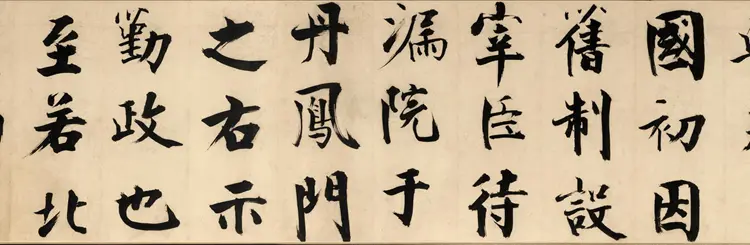 國初因
舊制設
宰臣待
漏院于
丹鳳門
之右示
勤政也
至若北